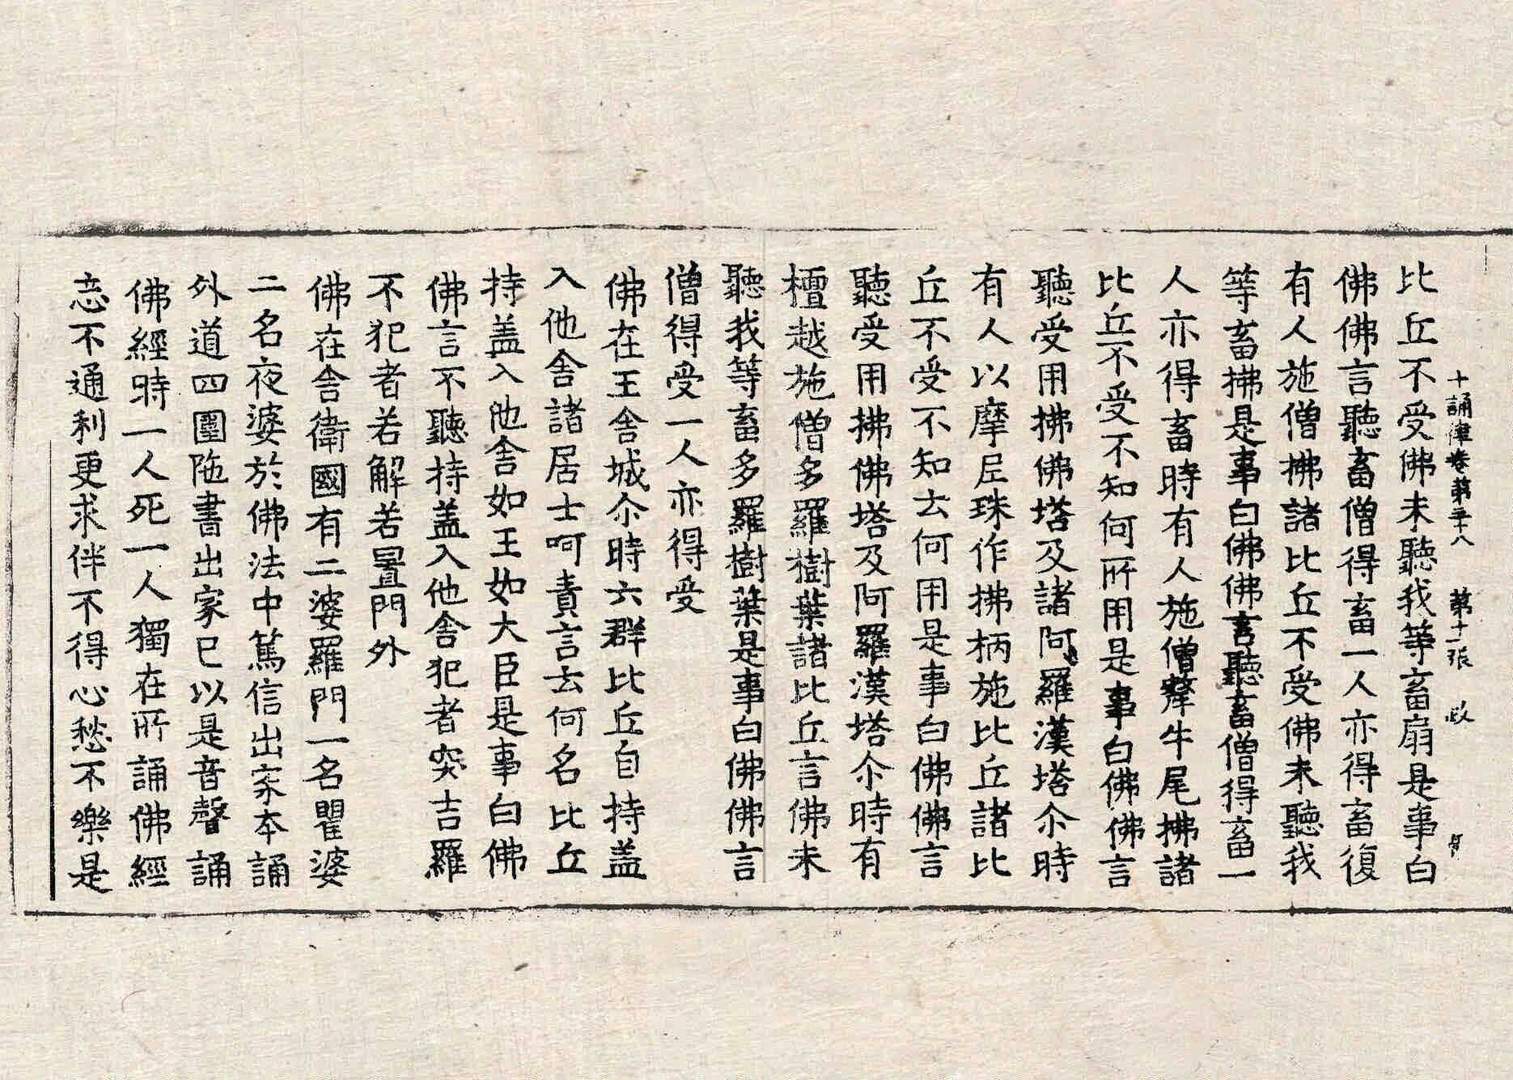 十誦律卷第三十八 第十一張 政
比丘不受佛未聽我等畜扇是事白
佛佛言聽畜僧得畜一人亦得畜復
有人施僧拂諸比丘不受佛未聽我
等畜拂是事白佛佛言聽畜僧得畜一
人亦得畜時有人施僧犛牛尾拂諸
比丘不受不知何所用是事白佛佛言
聽受用拂佛塔及諸阿羅漢塔尒時
有人以摩尼珠作拂柄施比丘諸比
丘不受不知云何用是事白佛佛言
聽受用拂佛塔及阿羅漢塔尒時有
檀越施僧多羅樹葉諸比丘言佛未
聽我等畜多羅樹葉是事白佛佛言
僧得受一人亦得受
佛在王舍城尒時六群比丘自持盖
入他舍諸居士呵責言云何名比丘
持盖入他舍如王如大臣是事白佛
佛言不聽持盖入他舍犯者突吉羅
不犯者若解若置門外
佛在舍衛國有二婆羅門一名瞿婆
二名夜婆於佛法中篤信出家本誦
外道四圍陁書出家已以是音聲誦
佛經時一人死一人獨在所誦佛經
忘不通利更求伴不得心愁不樂是